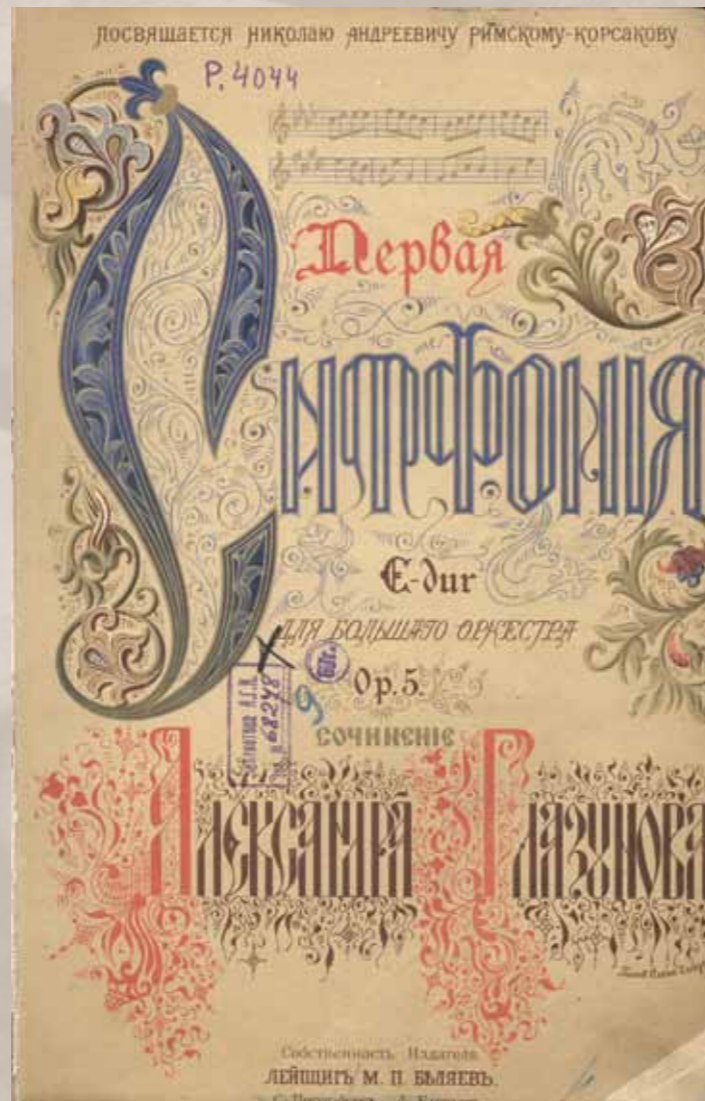 ПОСВЯЩАЕТСЯ НИКОЛАЮ АНДРЕЕВИЧУ РИМСКОМУ-КОРСАКОВУ
Р. 4044
Первая
СИМФОНІЯ
E-dur
ДЛЯ БОЛЬШАГО ОРКЕСТРА
Op. 5.
68248
9
СОЧИНЕНІЕ
АЛЕКСАНДРА ГЛАЗУНОВА
Собственность Издателя
ЛЕЙПЦИГЪ М. П. БѢЛЯЕВЪ.